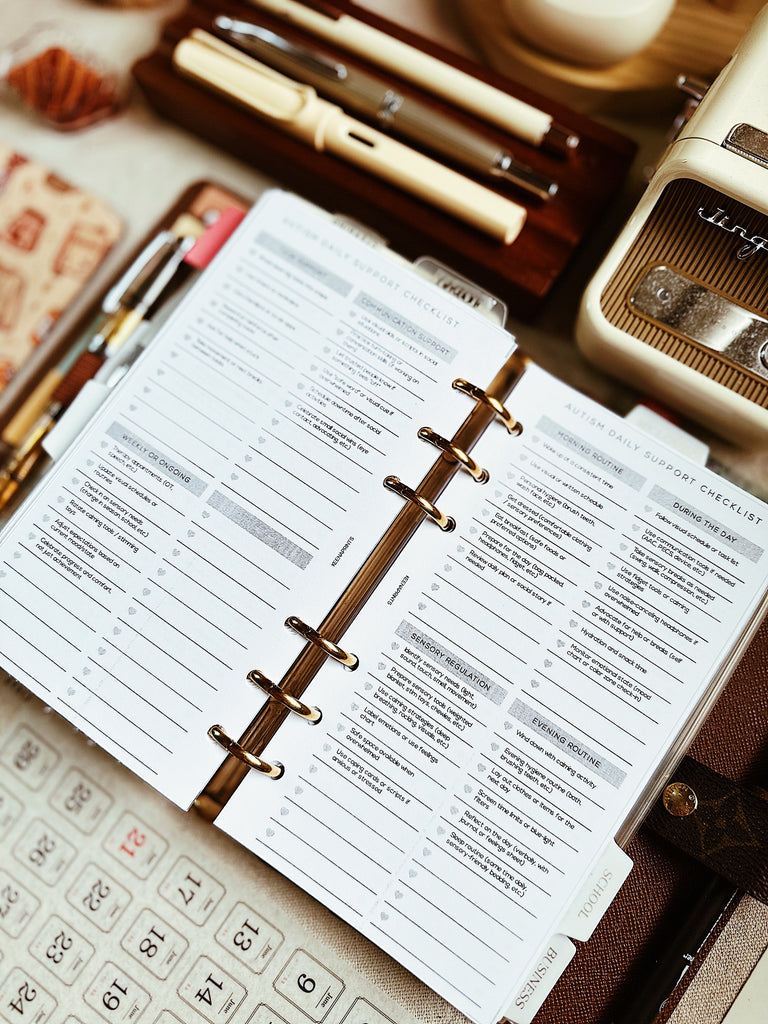 AUTISM DAILY SUPPORT CHECKLIST
COMMUNICATION SUPPORT
Use visual aids or scripts in social
situations
Use "safe word" or visual cue if
Schedule downtime after social
activities
Celebrate small social wins (eye
contact, advocating, etc.)
WEEKLY OR ONGOING
Therapy appointments (OT,
speech, etc.)
Update visual schedules or
routines
Check in on sensory needs
(change in season, school, etc.)
Rotate calming tools / stimming
toys
Adjust expectations based on
current mood/state
Celebrate progress and comfort,
not just achievement
KEENAPRINTS
AUTISM DAILY SUPPORT CHECKLIST
MORNING ROUTINE
Wake up at a consistent time
Use visual or written schedule
Personal hygiene (brush teeth,
wash face, etc.)
Get dressed (comfortable clothing
/ sensory preferences)
Eat breakfast (safe foods or
preferred options)
Prepare for the day (bag packed,
headphones, fidget, etc.)
Review daily plan or social story if
needed
DURING THE DAY
Follow visual schedule or task list
Use communication tools if needed
(AAC, PECS, device, etc.)
Take sensory breaks as needed
(swing, walk, compression, etc.)
Use fidget tools or calming
strategies
Use noise-canceling headphones if
overwhelmed
Advocate for help or breaks (self
or with support)
Hydration and snack time
Monitor emotional state (mood
chart or color zone check-in)
KEENAPRINTS
SENSORY REGULATION
Identify sensory needs (light,
sound, touch, smell, movement)
Prepare sensory tools (weighted
blanket, stim toys, chewies, etc.)
Use calming strategies (deep
breathing, rocking, visuals, etc.)
Label emotions or use feelings
chart
Safe space available when
overwhelmed
Use coping cards or scripts if
anxious or stressed
EVENING ROUTINE
Wind down with calming activity
Evening hygiene routine (bath,
brushing teeth, etc.)
Lay out clothes or items for the
next day
Screen time limits or blue-light
filters
Reflect on the day (verbally, with
journal, or feelings sheet)
Sleep routine (same time daily,
sensory-friendly bedding, etc.)
SCHOOL
BUSINESS
29
25
21
17
13
9
26
22
18
14
27
23
19
24
June